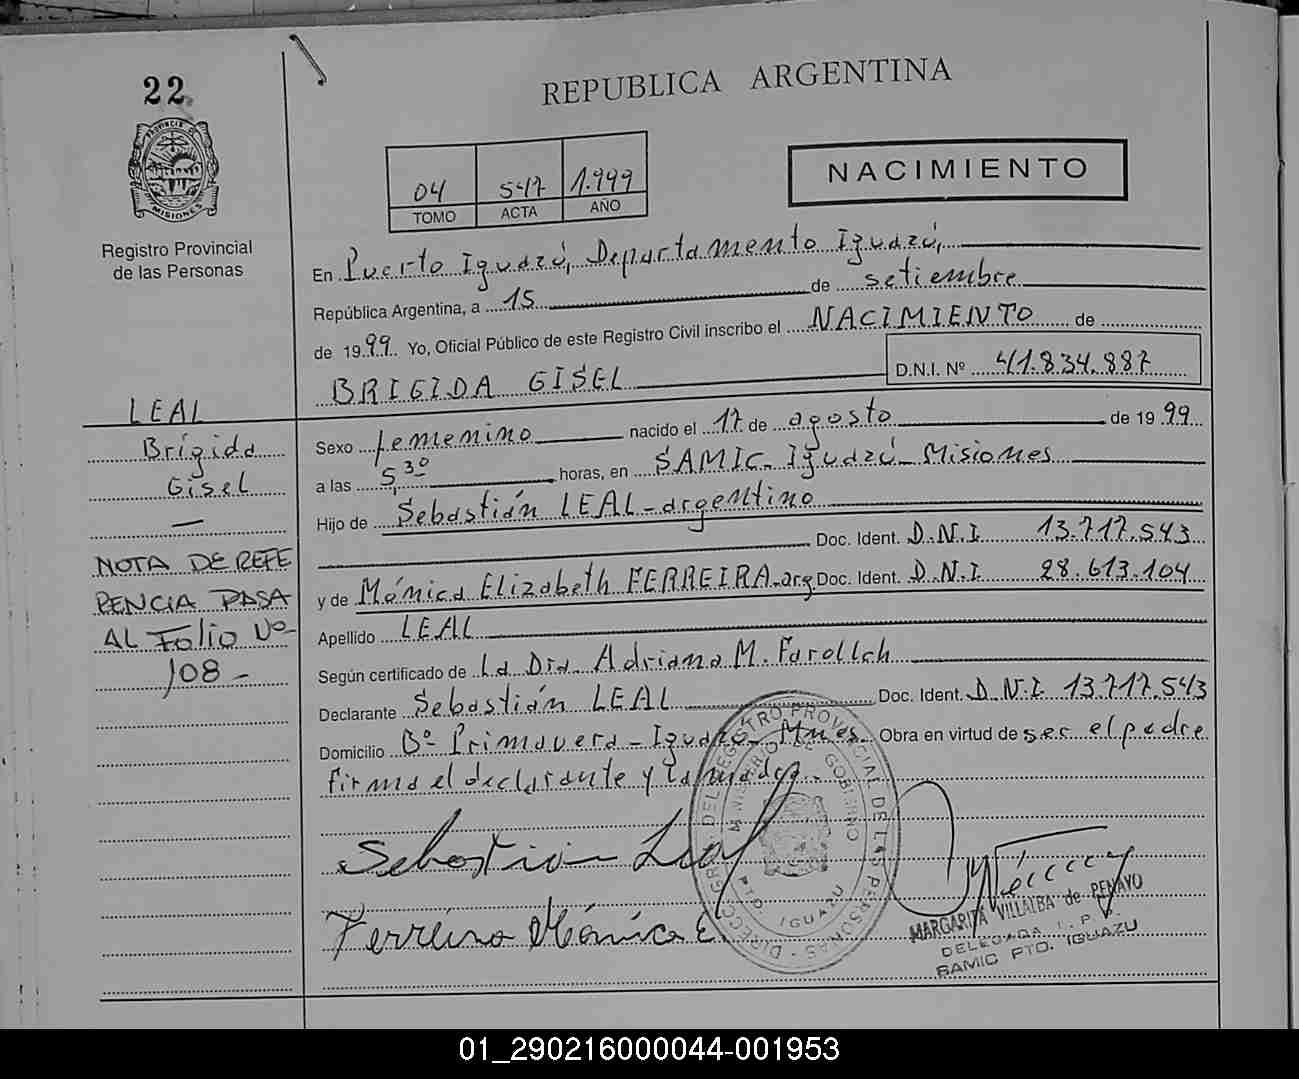 22
PROVINCIA DE MISIONES
Registro Provincial
de las Personas
REPUBLICA ARGENTINA
04 547 1.999
TOMO ACTA AÑO
NACIMIENTO
En Puerto Iguazú, Departamento Iguazú,
República Argentina, a 15 de setiembre
de 1999. Yo, Oficial Público de este Registro Civil inscribo el NACIMIENTO de
BRIGIDA GISEL D.N.I. Nº 41.834.887
LEAL
Brígida
Gisel
—
NOTA DE REFE
RENCIA PASA
AL Folio Nº
108 -
Sexo femenino nacido el 17 de agosto de 1999
a las 5,30 horas, en SAMIC- Iguazú- Misiones
Hijo de Sebastián LEAL-argentino
Doc. Ident. D.N.I 13.717.543
y de Mónica Elizabeth FERREIRA-arg Doc. Ident. D.N.I 28.613.104
Apellido LEAL
Según certificado de La Dra Adriana M.
Declarante Sebastián LEAL Doc. Ident. D.N.I 13.717.543
Domicilio Bº Primavera - Iguazú- Mnes. Obra en virtud de ser el padre
firma el declarante y la madre.
Sebastian Leal
Ferreira Mónica E.
DIRECC. GRAL. DEL REGISTRO PROVINCIAL DE LAS PERSONAS
MINISTERIO DE GOBIERNO
PTO. IGUAZU
MARGARITA VILLALBA de PENAYO
DELEGADA R. P. P.
SAMIC PTO. IGUAZU
01_290216000044-001953